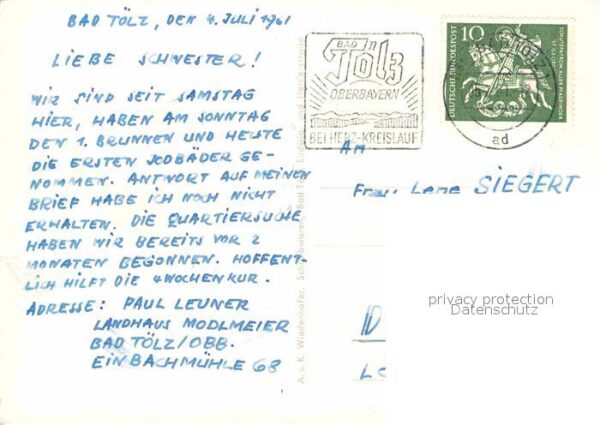 BAD TÖLZ, DEN 4. JULI 1961
LIEBE SCHWESTER!
WIR SIND SEIT SAMSTAG
HIER, HABEN AM SONNTAG
DEN 1. BRUNNEN UND HEUTE
DIE ERSTEN JODBÄDER GE-
NOMMEN. ANTWORT AUF MEINEN
BRIEF HABE ICH NOCH NICHT
ERHALTEN. DIE QUARTIERSUCHE
HABEN WIR BEREITS VOR 2
MONATEN BEGONNEN. HOFFENT-
LICH HILFT DIE 4WOCHENKUR.
ADRESSE: PAUL LEUNER
LANDHAUS MODLMEIER
BAD TÖLZ/OBB.
EINBACHMÜHLE 68
A. u. K. Wiedenhofer, Bad Tölz
BAD
in
Tölz
OBERBAYERN
BEI HERZ-KREISLAUF
10
DEUTSCHE BUNDESPOST
ad
An
Frau Lene SIEGERT
privacy protection
Datenschutz